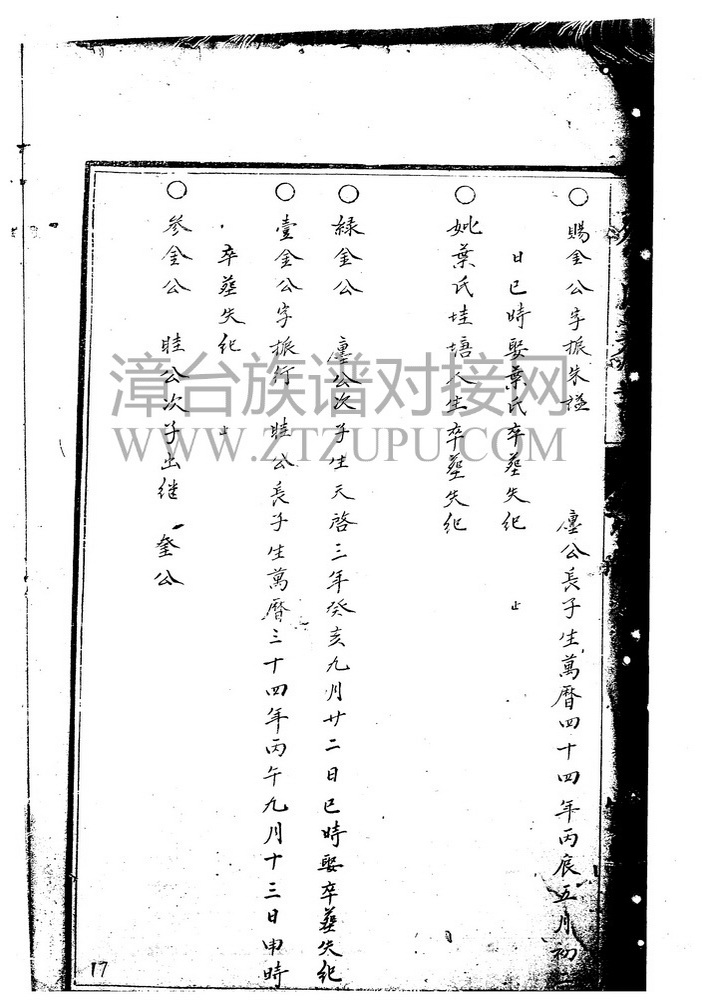 賜金公字振朱謚 廛公長子生萬曆四十四年丙辰五月初二
日巳時娶葉氏卒塟失紀 止
妣葉氏垚塘人生卒塟失紀
緑金公 廛公次子生天啓三年癸亥九月廿二日巳時娶卒塟失紀
壹金公字振行 眭公長子生萬曆三十四年丙午九月十三日申時
卒塟失紀 止
參金公 眭公次子出継 奎公
17
漳台族谱对接网
WWW.ZTZUPU.COM